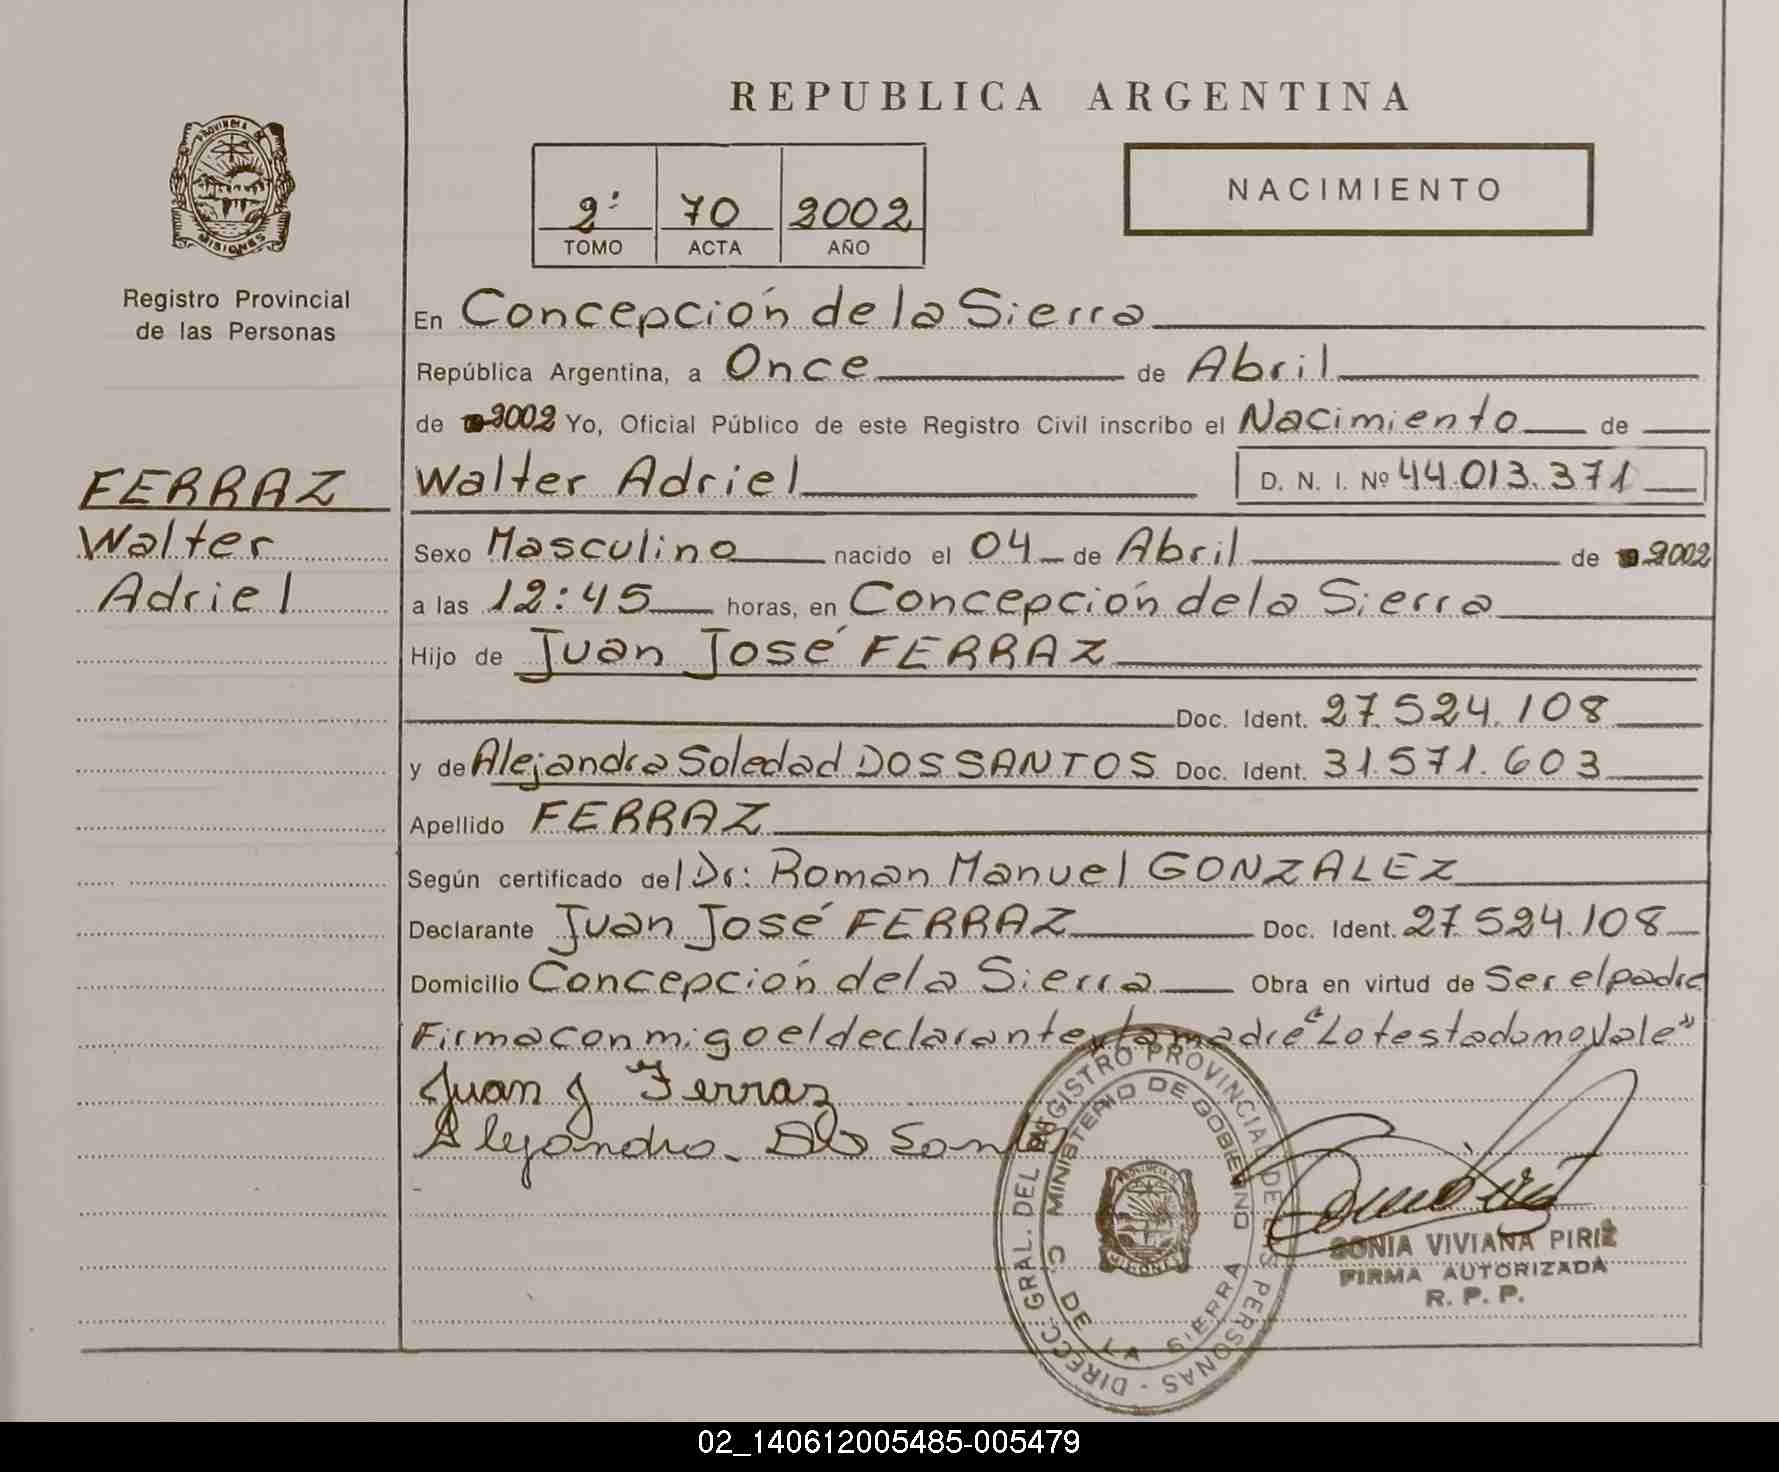 REPUBLICA ARGENTINA
PROVINCIA DE
MISIONES
Registro Provincial
de las Personas
2º 70 2002
TOMO ACTA AÑO
NACIMIENTO
FERRAZ
Walter
Adriel
En Concepción de la Sierra
República Argentina, a Once de Abril
de 2002 Yo, Oficial Público de este Registro Civil inscribo el Nacimiento de
Walter Adriel D. N. I. Nº 44.013.371
Sexo Masculino nacido el 04 de Abril de 2002
a las 12:45 horas, en Concepción de la Sierra
Hijo de Juan José FERRAZ
Doc. Ident. 27.524.108
y de Alejandra Soledad DOS SANTOS Doc. Ident. 31.571.603
Apellido FERRAZ
Según certificado del Dr: Roman Manuel GONZALEZ
Declarante Juan José FERRAZ Doc. Ident. 27.524.108
Domicilio Concepción de la Sierra Obra en virtud de Ser el padre
Firma conmigo el declarante y la madre "Lo testado no Vale"
Juan J Ferraz
Alejandra Dos Santos
DIRECC. GRAL. DEL REGISTRO PROVINCIAL DE LAS PERSONAS -
MINISTERIO DE GOBIERNO
C. DE LA SIERRA
SONIA VIVIANA PIRIZ
FIRMA AUTORIZADA
R. P. P.
02_140612005485-005479